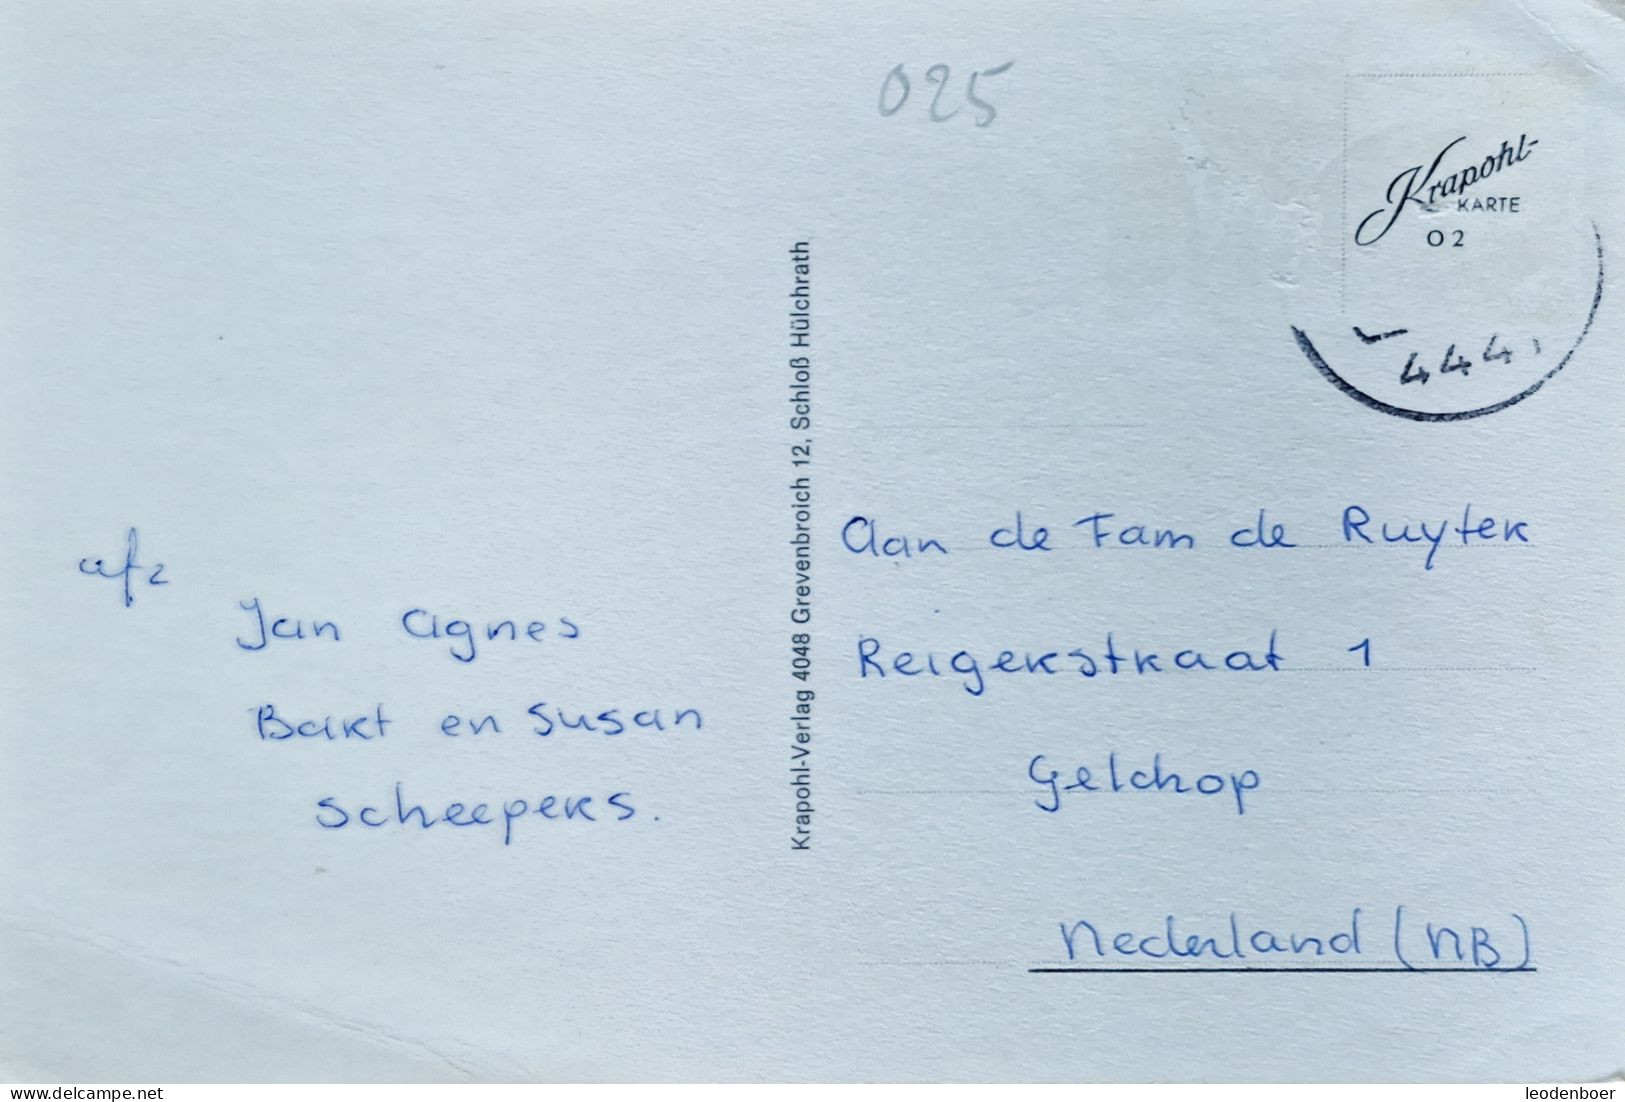 025
Krapohl-
KARTE
02
4441
Krapohl-Verlag 4048 Grevenbroich 12, Schloß Hülchrath
afz
Jan Agnes
Bart en Susan
Scheepers.
Aan de Fam de Ruyter
Reigerstraat 1
Geldrop
Nederland (NB)
delcampe.net
leodenboer